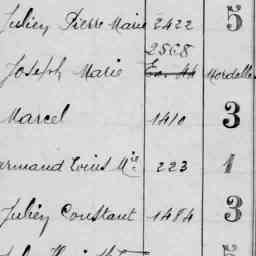 Julien Pierre Marie 2422 5
2868
Joseph Marie Mordelles
Marcel 1410 3
Armand Louis Mie 223 1
Julien Constant 1484 3
5